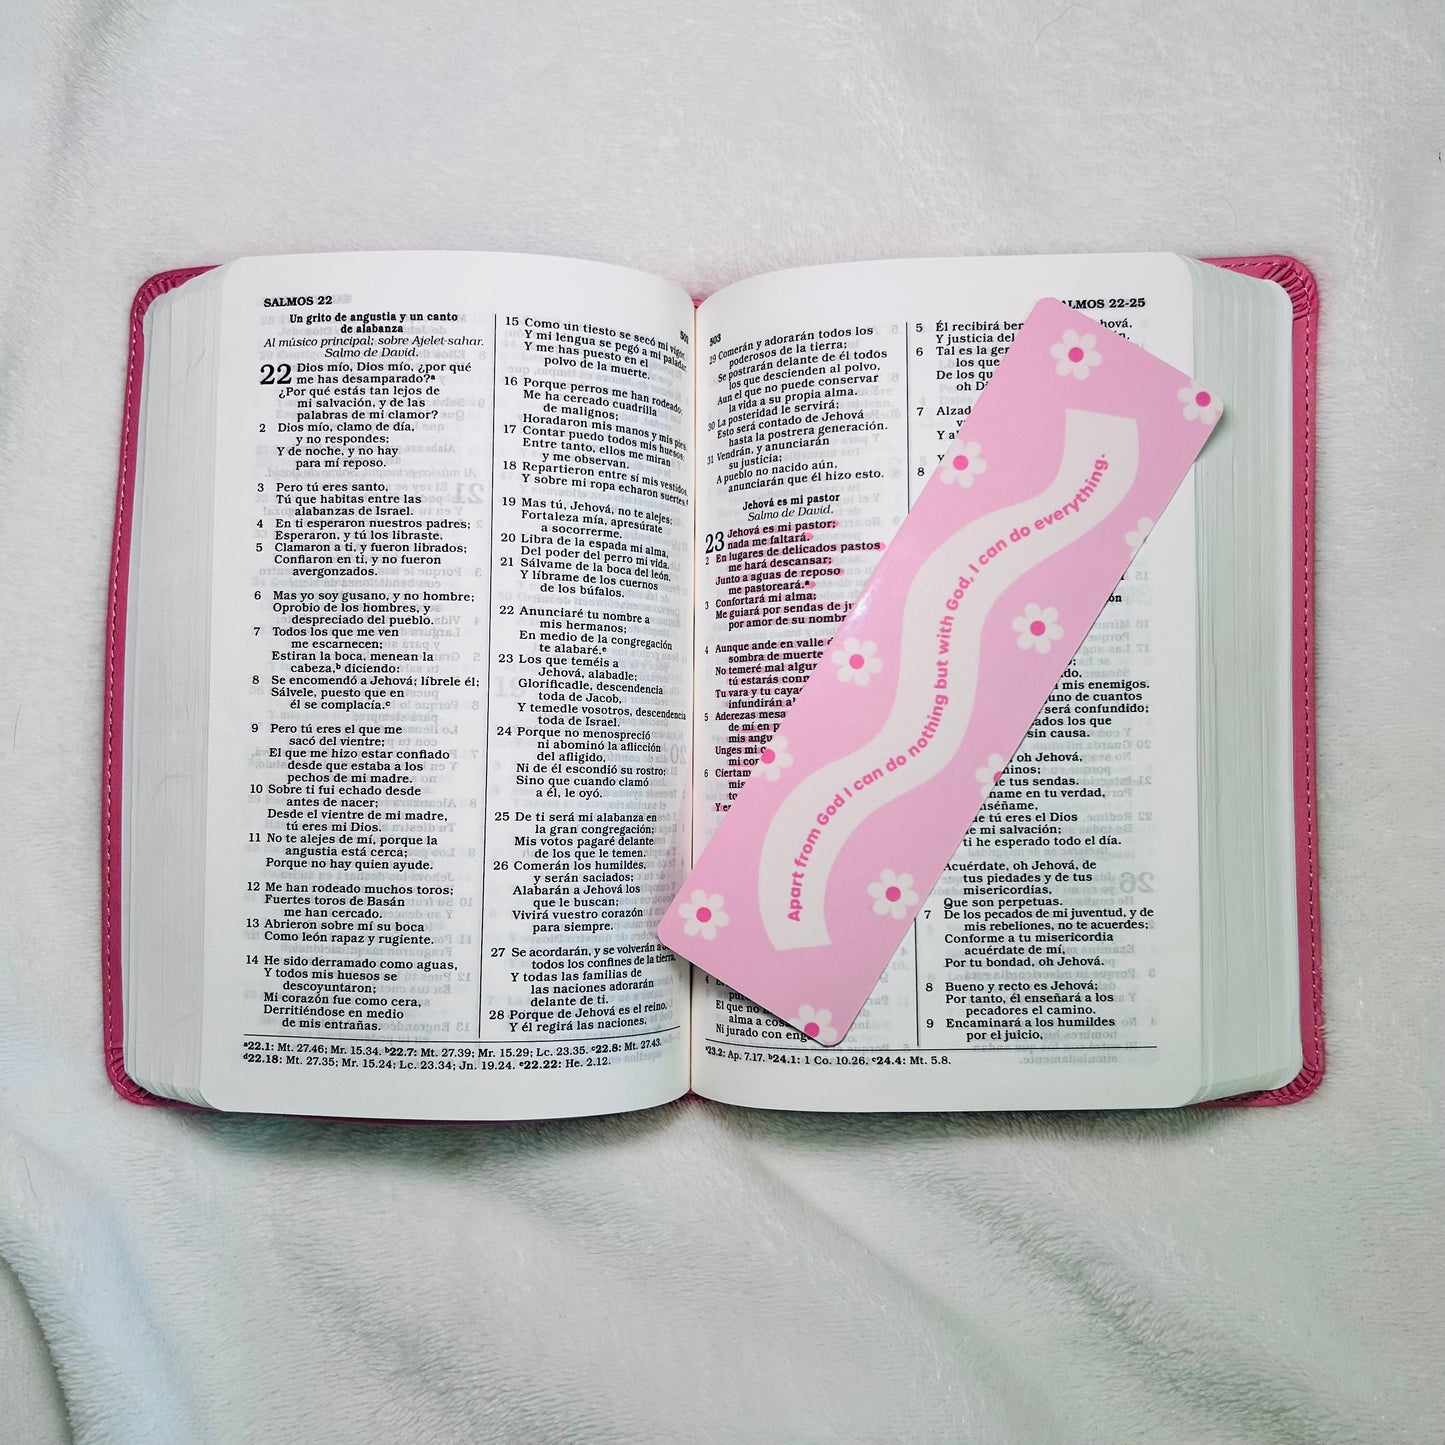 SALMOS 22
Un grito de angustia y un canto
de alabanza
Al músico principal; sobre Ajelet-sahar.
Salmo de David.
22 Dios mío, Dios mío, ¿por qué
me has desamparado?ª
¿Por qué estás tan lejos de
mi salvación, y de las
palabras de mi clamor?
2 Dios mío, clamo de día,
y no respondes;
Y de noche, y no hay
para mí reposo.
3 Pero tú eres santo,
Tú que habitas entre las
alabanzas de Israel.
4 En ti esperaron nuestros padres;
Esperaron, y tú los libraste.
5 Clamaron a ti, y fueron librados;
Confiaron en ti, y no fueron
avergonzados.
6 Mas yo soy gusano, y no hombre;
Oprobio de los hombres, y
despreciado del pueblo.
7 Todos los que me ven
me escarnecen;
Estiran la boca, menean la
cabeza,ᵇ diciendo:
8 Se encomendó a Jehová; líbrele él;
Sálvele, puesto que en
él se complacía.ᶜ
9 Pero tú eres el que me
sacó del vientre;
El que me hizo estar confiado
desde que estaba a los
pechos de mi madre.
10 Sobre ti fui echado desde
antes de nacer;
Desde el vientre de mi madre,
tú eres mi Dios.
11 No te alejes de mí, porque la
angustia está cerca;
Porque no hay quien ayude.
12 Me han rodeado muchos toros;
Fuertes toros de Basán
me han cercado.
13 Abrieron sobre mí su boca
Como león rapaz y rugiente.
14 He sido derramado como aguas,
Y todos mis huesos se
descoyuntaron;
Mi corazón fue como cera,
Derritiéndose en medio
de mis entrañas.
15 Como un tiesto se secó mi vigor,
Y mi lengua se pegó a mi paladar,
Y me has puesto en el
polvo de la muerte.
16 Porque perros me han rodeado;
Me ha cercado cuadrilla
de malignos;
Horadaron mis manos y mis pies.
17 Contar puedo todos mis huesos;
Entre tanto, ellos me miran
y me observan.
18 Repartieron entre sí mis vestidos,
Y sobre mi ropa echaron suertes.ᵈ
19 Mas tú, Jehová, no te alejes;
Fortaleza mía, apresúrate
a socorrerme.
20 Libra de la espada mi alma,
Del poder del perro mi vida.
21 Sálvame de la boca del león,
Y líbrame de los cuernos
de los búfalos.
22 Anunciaré tu nombre a
mis hermanos;
En medio de la congregación
te alabaré.ᵉ
23 Los que teméis a
Jehová, alabadle;
Glorificadle, descendencia
toda de Jacob,
Y temedle vosotros, descendencia
toda de Israel.
24 Porque no menospreció
ni abominó la aflicción
del afligido,
Ni de él escondió su rostro;
Sino que cuando clamó
a él, le oyó.
25 De ti será mi alabanza en
la gran congregación;
Mis votos pagaré delante
de los que le temen.
26 Comerán los humildes,
y serán saciados;
Alabarán a Jehová los
que le buscan;
Vivirá vuestro corazón
para siempre.
27 Se acordarán, y se volverán a
todos los confines de la tierra,
Y todas las familias de
las naciones adorarán
delante de ti.
28 Porque de Jehová es el reino,
Y él regirá las naciones.
ª22.1: Mt. 27.46; Mr. 15.34. ᵇ22.7: Mt. 27.39; Mr. 15.29; Lc. 23.35. ᶜ22.8: Mt. 27.43.
ᵈ22.18: Mt. 27.35; Mr. 15.24; Lc. 23.34; Jn. 19.24. ᵉ22.22: He. 2.12.
503
29 Comerán y adorarán todos los
poderosos de la tierra;
Se postrarán delante de él todos
los que descienden al polvo,
Aun el que no puede conservar
la vida a su propia alma.
30 La posteridad le servirá;
Esto será contado de Jehová
hasta la postrera generación.
31 Vendrán, y anunciarán
su justicia;
A pueblo no nacido aún,
anunciarán que él hizo esto.
Jehová es mi pastor
Salmo de David.
23 Jehová es mi pastor;
nada me faltará.
2 En lugares de delicados pastos
me hará descansar;
Junto a aguas de reposo
me pastoreará.ª
3 Confortará mi alma;
Me guiará por sendas de
por amor de su
4 Aunque ande en valle
sombra de muerte
No temeré mal
tú estarás
Tu vara y tu
infundirán
5 Aderezas mesa
de mí en
mis
Unges mi
mi
6
Y
4
El que no
alma a
Ni jurado con
ª23.2: Ap. 7.17. ᵇ24.1: 1 Co. 10.26. ᶜ24.4: Mt. 5.8.
22-25
5 Él recibirá
Y justicia del
6 Tal es la
los que
De los
oh
7
8
mis enemigos.
uno de cuantos
será confundido;
los que
sin causa.
oh Jehová,
tus sendas.
en tu verdad,
tú eres el Dios
mi salvación;
ti he esperado todo el día.
Acuérdate, oh Jehová, de
tus piedades y de tus
misericordias,
Que son perpetuas.
7 De los pecados de mi juventud, y de
mis rebeliones, no te acuerdes;
Conforme a tu misericordia
acuérdate de mí,
Por tu bondad, oh Jehová.
8 Bueno y recto es Jehová;
Por tanto, él enseñará a los
pecadores el camino.
9 Encaminará a los humildes
por el juicio,
Apart from God I can do nothing but with God, I can do everything.